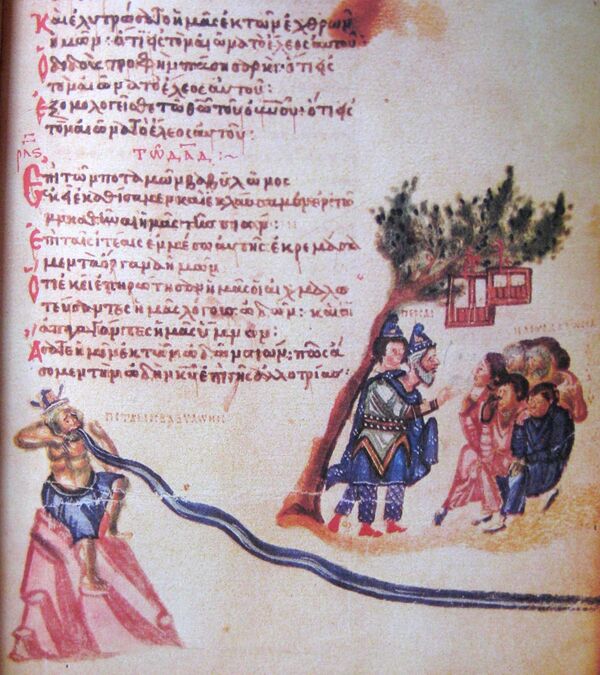 Καὶ ἐλυτρώσατο ἡμᾶς ἐκ τῶν ἐχθρῶν
ἡμῶν: ὅτι εἰς τὸν αἰῶνα τὸ ἔλεος αὐτοῦ:
Ὁ διδοὺς τροφὴν πάση σαρκί: ὅτι εἰς
τὸν αἰῶνα τὸ ἔλεος αὐτοῦ:
Ἐξομολογεῖσθε τῶ θῶ τοῦ οὐνοῦ: ὅτι εἰς
τὸν αἰῶνα τὸ ἔλεος αὐτοῦ:
ΤΩ ΔΑΔ:
Ἐπὶ τῶν ποταμῶν βαβυλῶνος
ἐκεῖ ἐκαθίσαμεν καὶ ἐκλαύσαμεν ἐν τῶ
μνησθῆναι ἡμᾶς τῆς σιών:
Ἐπὶ ταῖς ἰτέαις ἐν μέσω αὐτῆς ἐκρεμάσα
μεν τὰ ὄργανα ἡμῶν
Ὅτι ἐκεῖ ἐπηρώτησαν ἡμᾶς οἱ αἰχμαλω
τεύσαντες ἡμᾶς λόγους ὠδῶν: καὶ οἱ
ἀπαγαγόντες ἡμᾶς ὕμνον:
Ἄσατε ἡμῖν ἐκ τῶν ὠδῶν σιών: πῶς ἄ
σομεν τὴν ὠδὴν κυ ἐπὶ γῆς ἀλλοτρίας:
ΠΕΡΣΑΙ